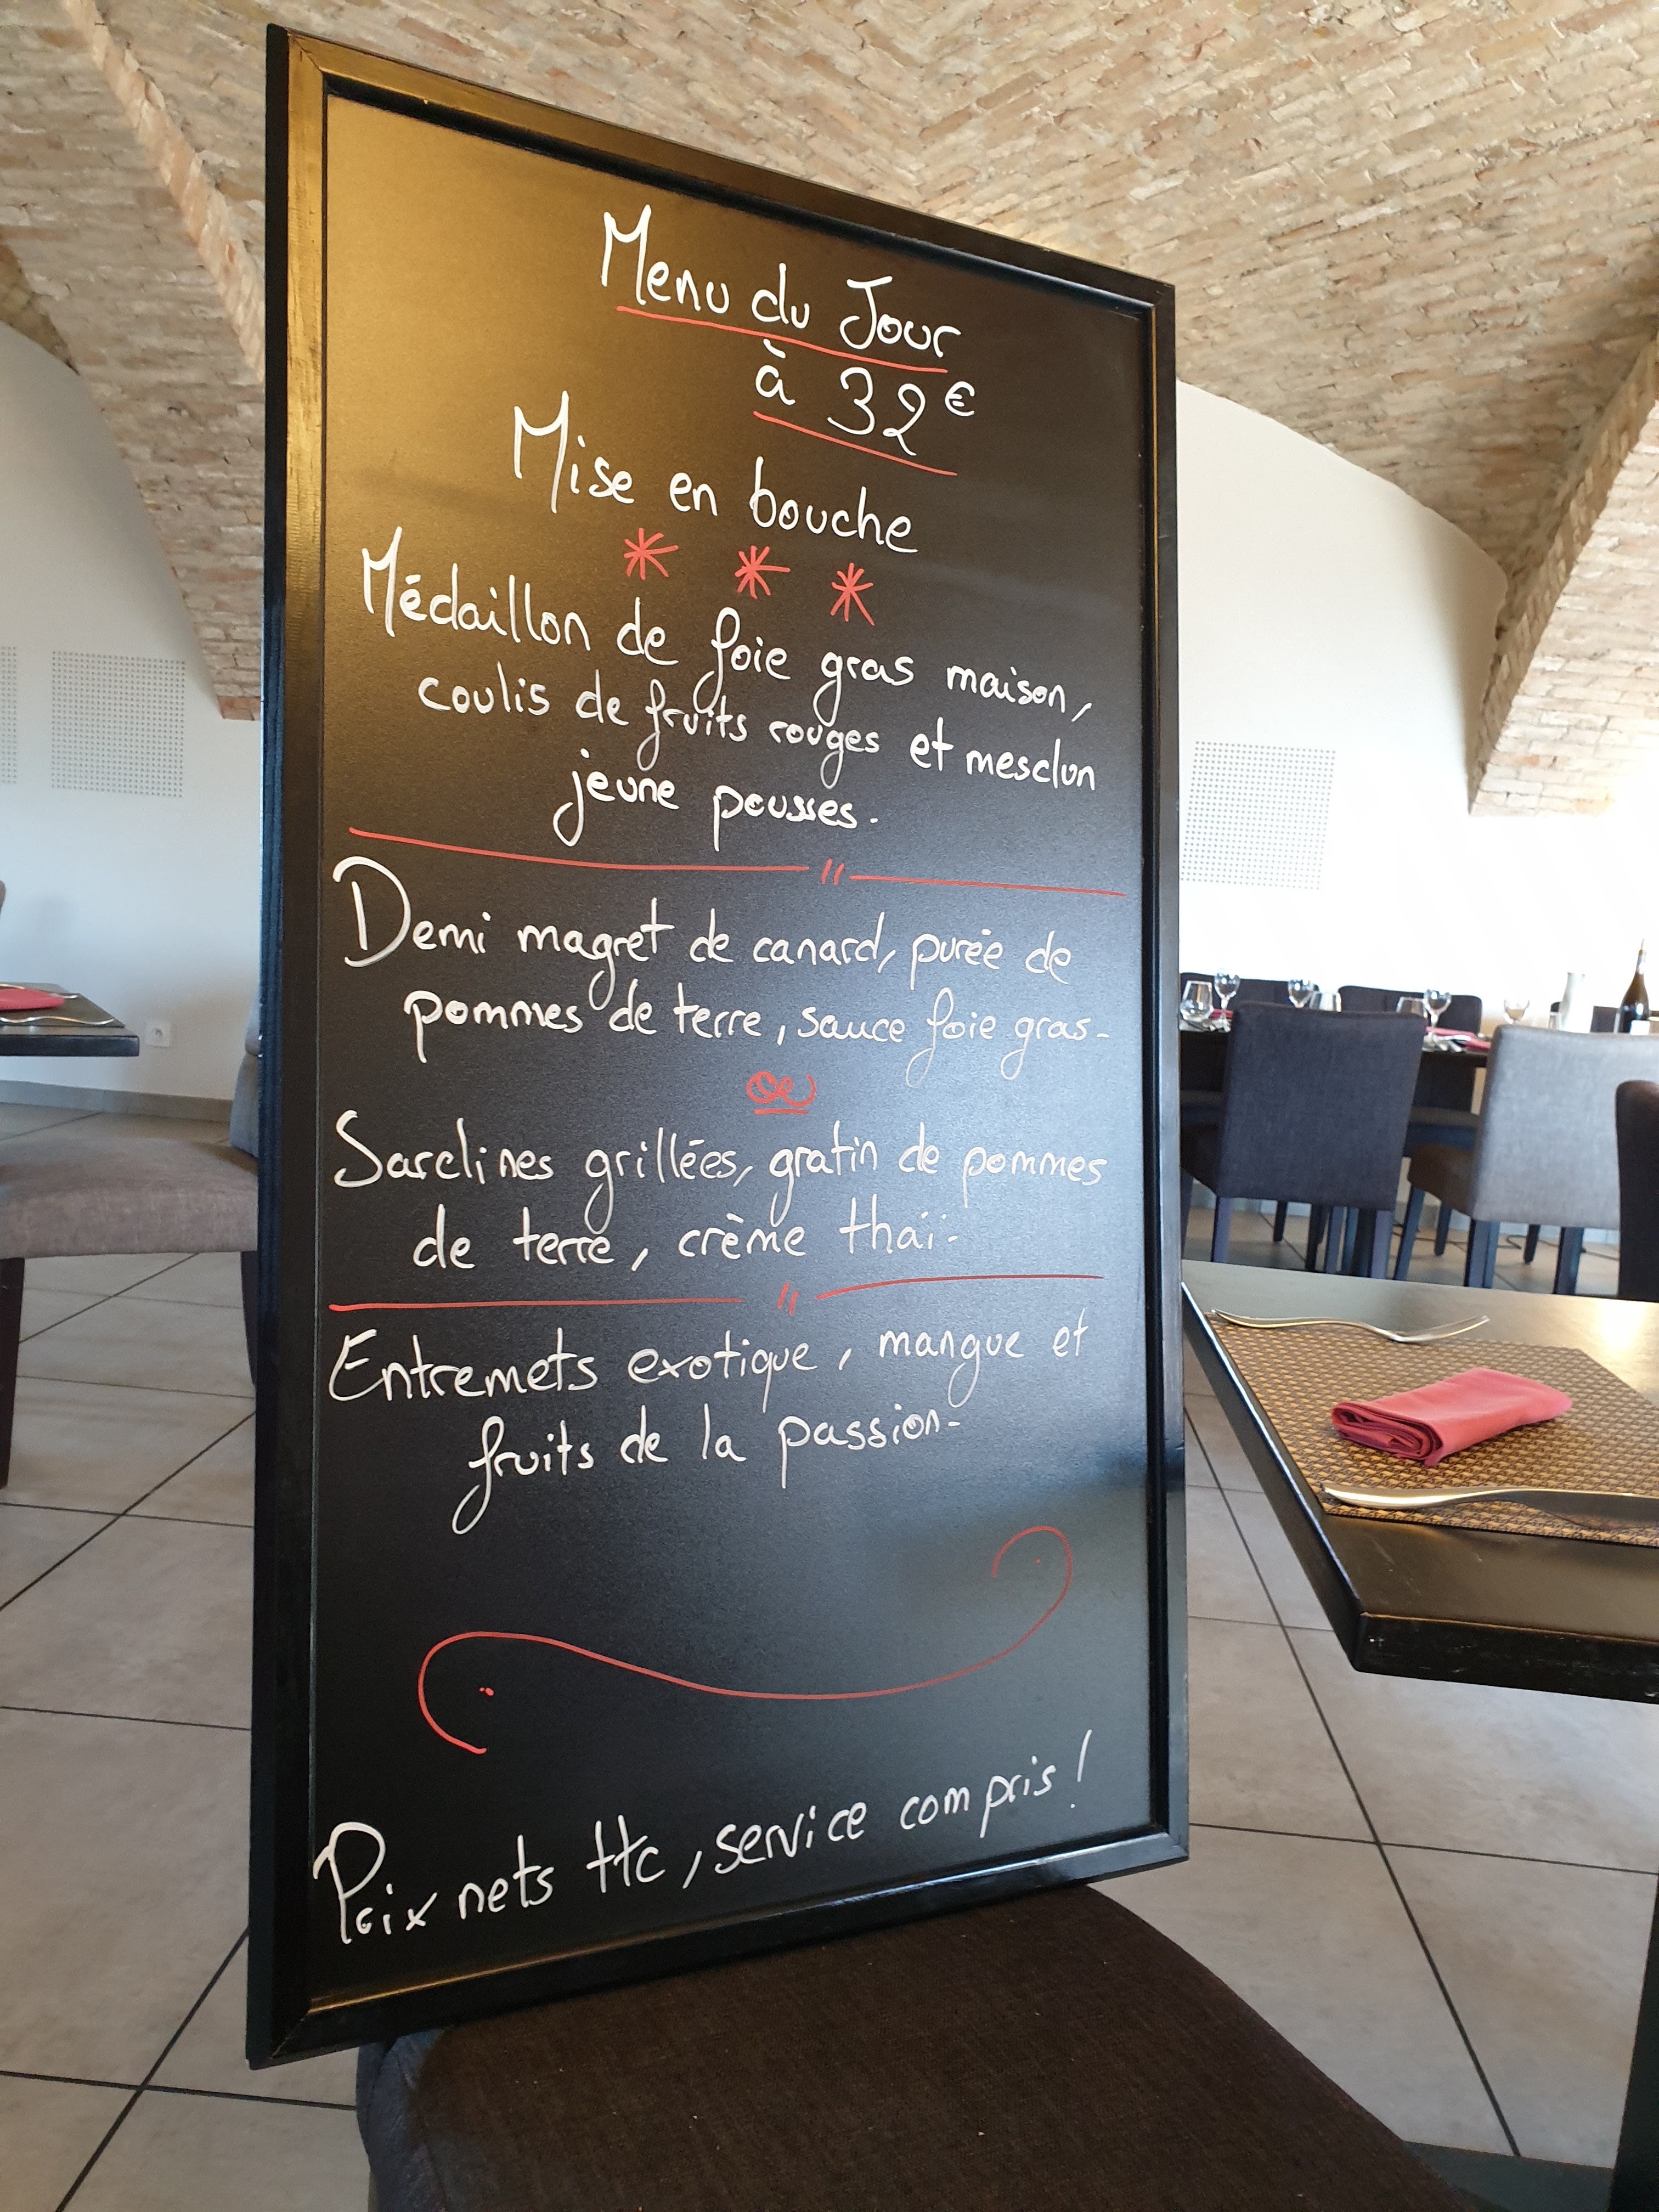 Menu du Jour
à 32€
Mise en bouche
* * *
Médaillon de foie gras maison,
coulis de fruits rouges et mesclun
jeune pousses.
Demi magret de canard, purée de
pommes de terre, sauce foie gras-
ou
Sardines grillées, gratin de pommes
de terre, crème thaï-
Entremets exotique, mangue et
fruits de la passion-
Prix nets ttc, service compris!